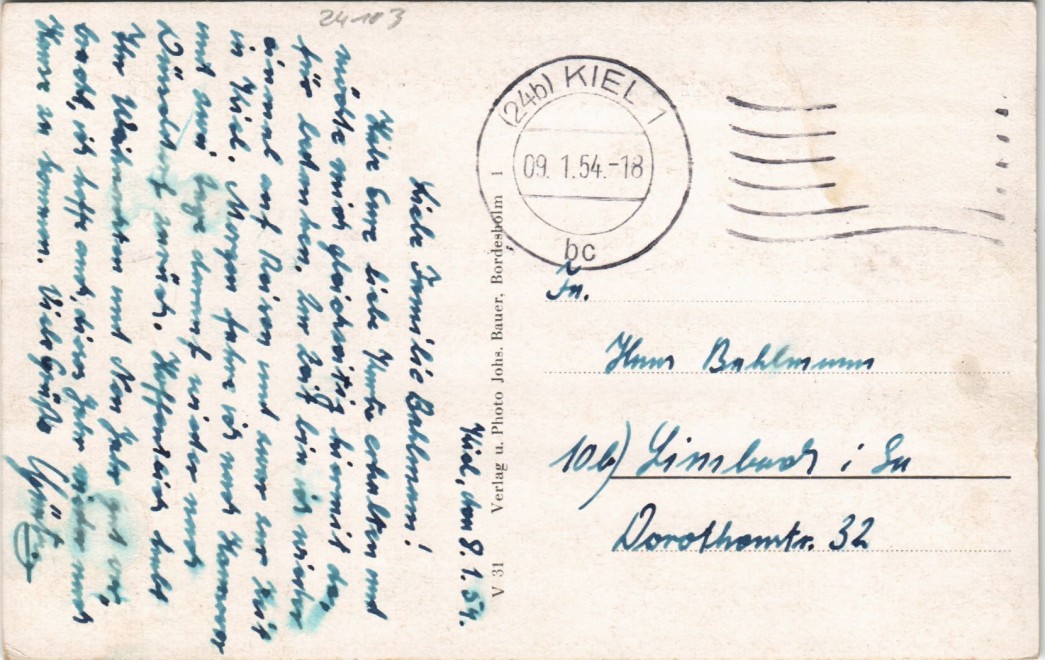 24-103
Kiel, den 8.1.54.
Liebe Familie Bahlmann!
Habe Eure liebe Karte erhalten und
möchte mich gleichzeitig hiermit da-
für bedanken. Zur Zeit bin ich wieder
einmal auf Reisen und zwar zur Zeit
in Kiel. Morgen fahre ich nach Hannover
und zwei Tage darauf wieder nach
zurück. Hoffentlich habt
Ihr Weihnachten und Neu Jahr gut ver-
bracht, ich hoffe auch, dieses Jahr wieder nach
Hause zu kommen. Viele Grüße
Günter
V 31 Verlag u. Photo Johs. Bauer, Bordesholm 1
(24b) KIEL 1
09. 1.54.-18
bc
Fa.
Hans Bahlmann
10b) Limbach i Sa
Dorotheenstr. 32